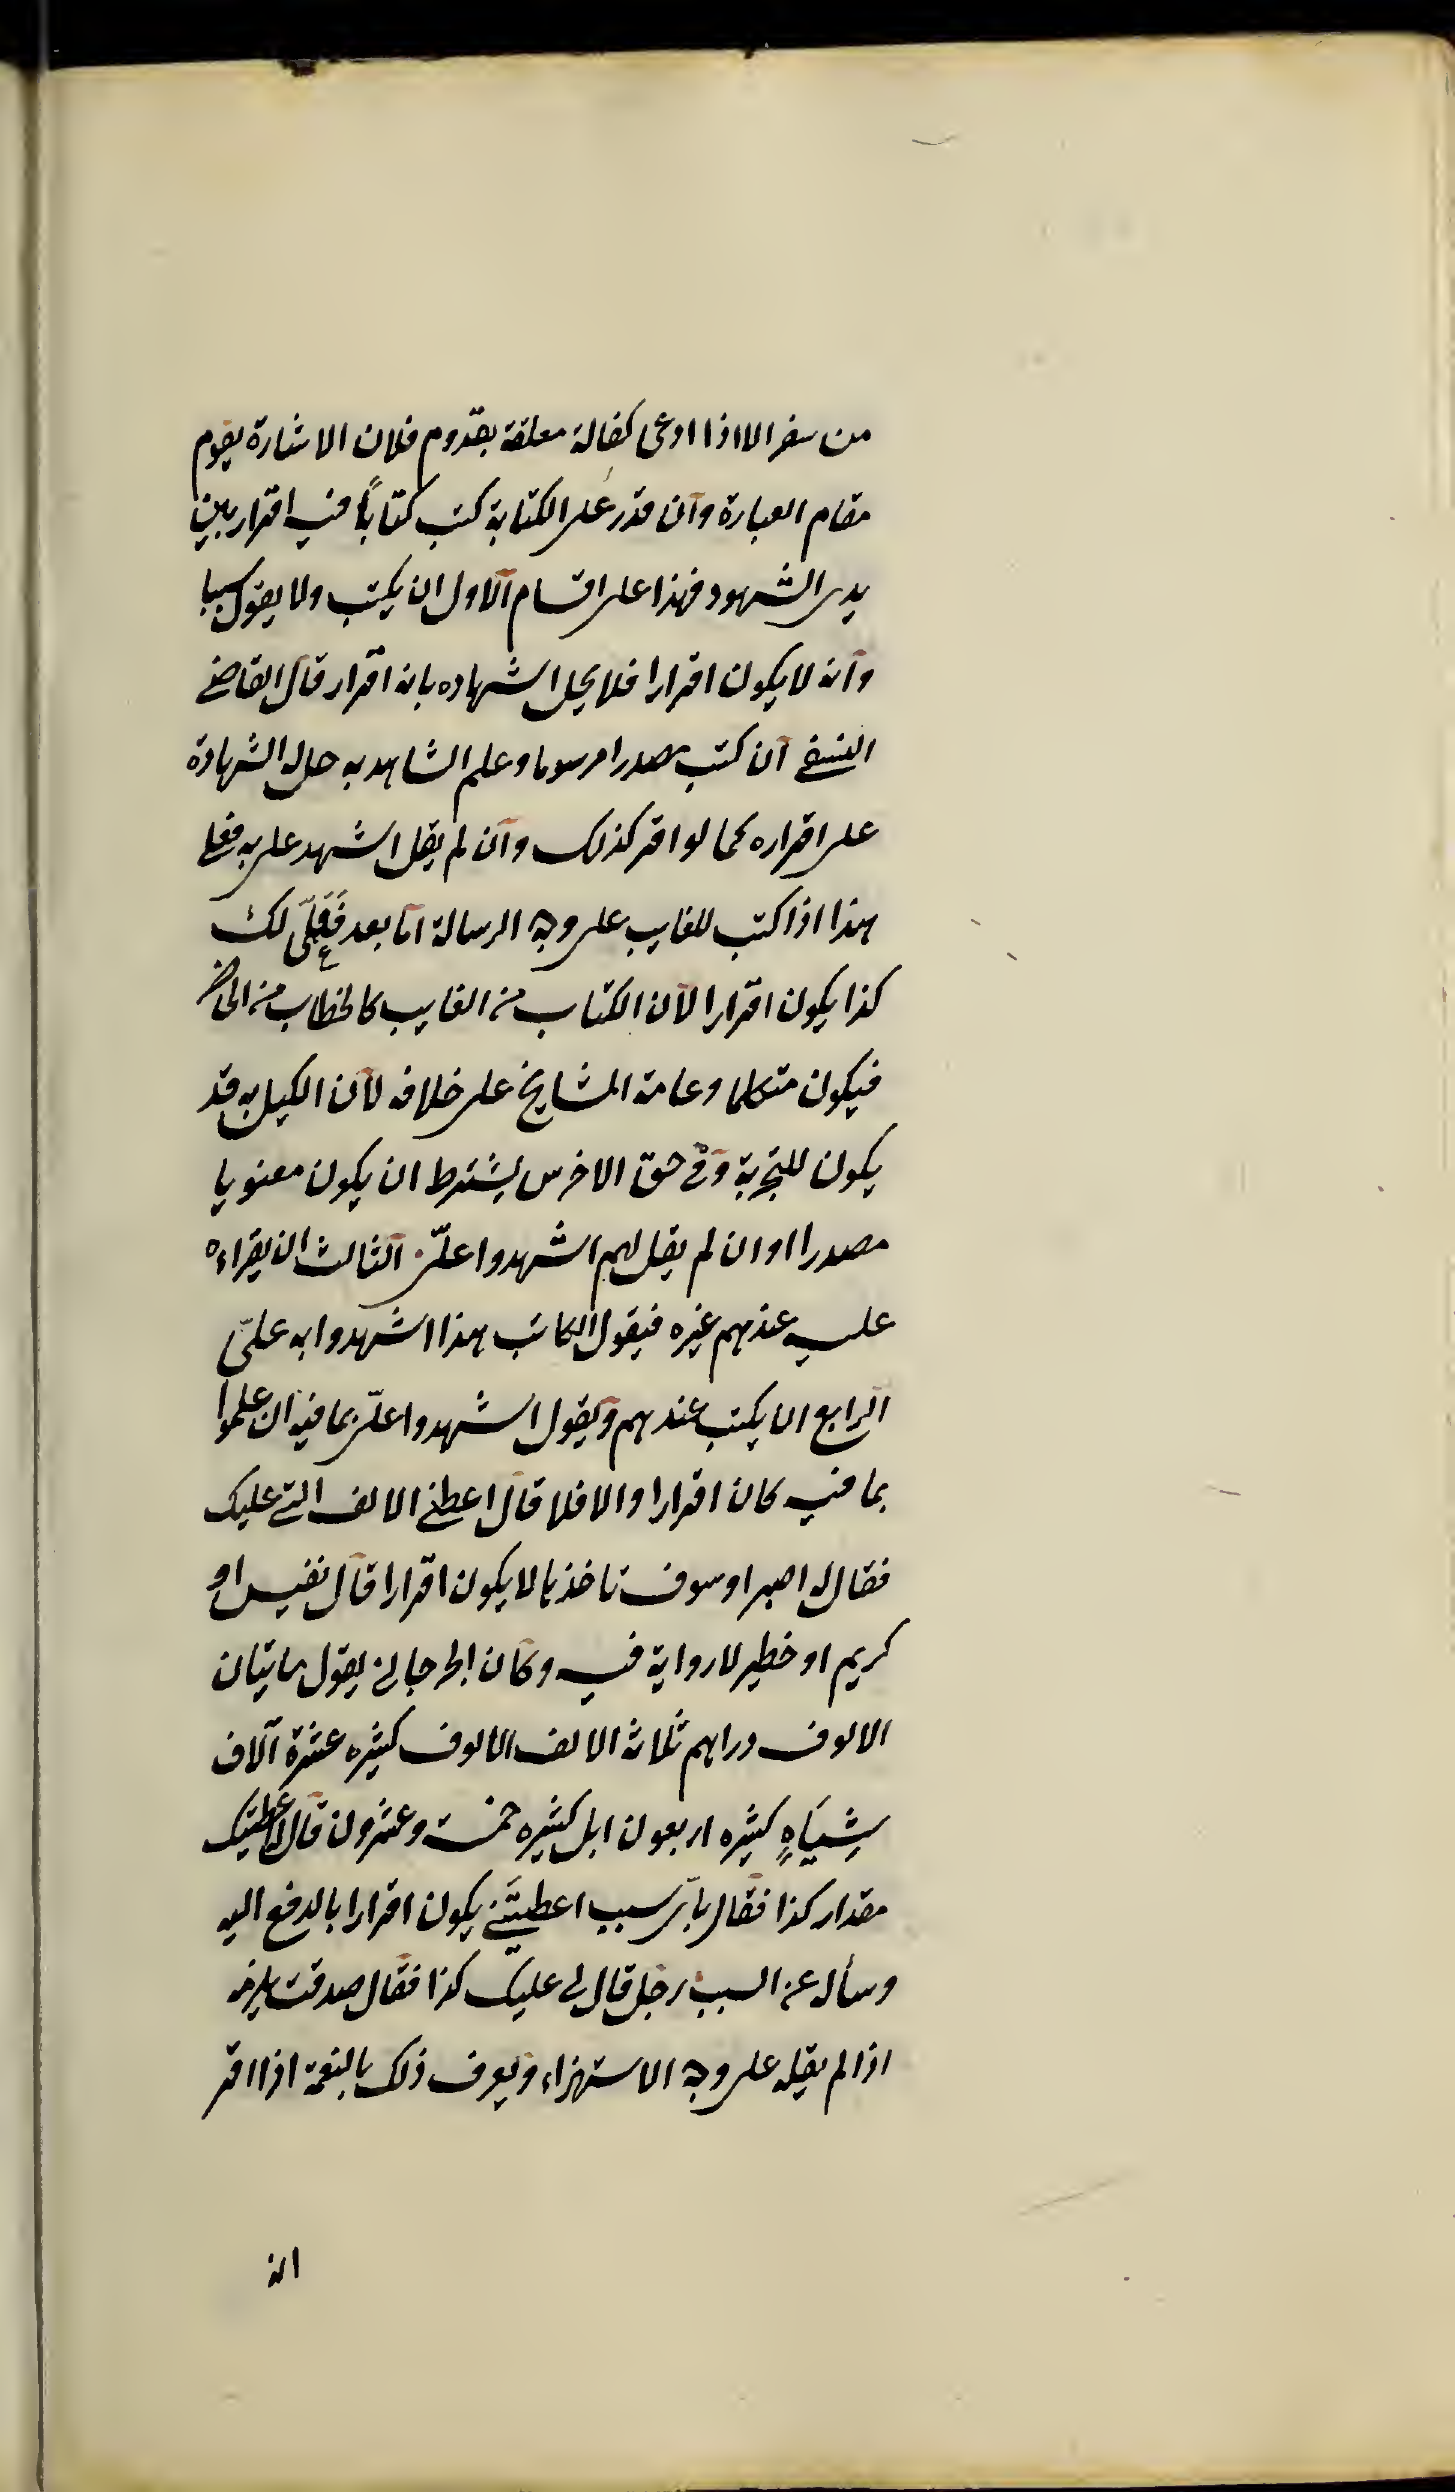 من سفر الا اذا ادعى كفالة معلقة بقدوم فلان الاشارة يقوم
مقام العبارة وآن قدر على الكتابة كتب كتاباً فيه اقرار بين
يدى الشهود فهذا على اقسام آلاول ان يكتب ولا يقول شيا
وآنه لا يكون اقرارا فلا يحل الشهاده بانه اقرار قال القاضى
النسفى آن كتب مصدرا مرسوما وعلم الشاهد به حل له الشهادة
على اقراره كما لو اقر كذلك وآن لم يقل اشهد على به فعلى
هذا اذا كتب للغايب على وجه الرسالة اما بعد فَعَلَىّ لك
كذا يكون اقرارا لآن الكتاب من الغايب كالخطاب من الحاضر
فيكون متكلما وعامة المشايخ على خلافه لآن الكيل به قد
يكون للتجربة وفى حق الاخرس يشترط ان يكون معنويا
مصدرا اوان لم يقل لهم اشهدوا علىّ آلثالث ان يقراءه
عليه عندهم غيره فيقول الكاتب هذا اشهدوا به علىّ
آلرابع ان يكتب عندهم ويقول اشهدوا علىّ بما فيه ان علموا
بما فيه كان اقرارا والا فلا قال اعطنى الالف التى عليك
فقال له اصبر او سوف تاخذها لا يكون اقرارا قال نفيس او
كريم او خطير لا رواية فيه وكان الجرجانى يقول مايتان
الالوف دراهم ثلاثة الالف الالوف كثيره عشرة آلاف
شِيَاهٍ كثيره اربعون ابل كثيره خمسة وعشرون قال اعطيتك
مقدار كذا فقال باىّ سبب اعطيتَنى يكون اقرارا بالدفع اليه
وسأله عن السبب رجل قال لى عليك كذا فقال صدقت يلزمه
اذا لم يقله على وجه الاستهزاء ويعرف ذلك بالنغمة اذا اقر